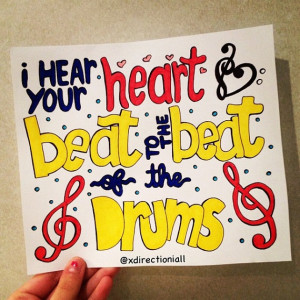 i HEAR YOUR heart
beat TO THE beat
of the
DRUMS
@xdirectioniall